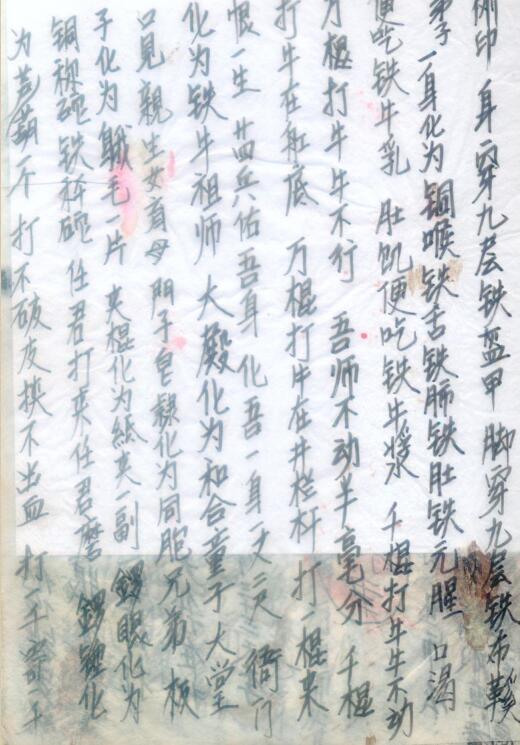 身穿九层铁盔甲 脚穿九层铁布鞋
弟子一身化为铜喉铁舌铁肺铁肚铁元腥 口渴
便吃铁牛乳 肚饥便吃铁牛浆 千棍打牛牛不动
万棍打牛牛不行 吾师不动半毫分 千棍
打牛在船底 万棍打牛在井栏杆 打一棍来
恨一生 苗兵佑吾身 化吾一身 衙门
化为铁牛祖师 大殿化为和合童子 大堂
只见亲生女育母 門子皂隸化为同胞兄弟 板
子化为鹅毛一片 夹棍化为紙夹一副 鑼眼化为
铜 碗铁秤砣 任君打来任君磨 鑼鎚化
为 一个 打不破皮挟不出血 打一千